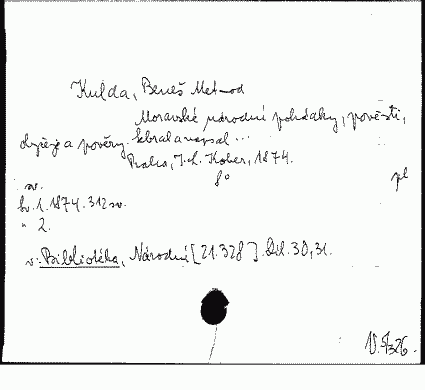 Kulda, Beneš Metod
Moravské národní pohádky, pověsti,
obyčeje a pověry. Sebral a napsal ...
Praha, I. L. Kober, 1874.
8°
sv.
sv. 1. 1874. 312 sv.
" 2.
v: Bibliotéka, Národní [21.328]. Díl. 30, 31.